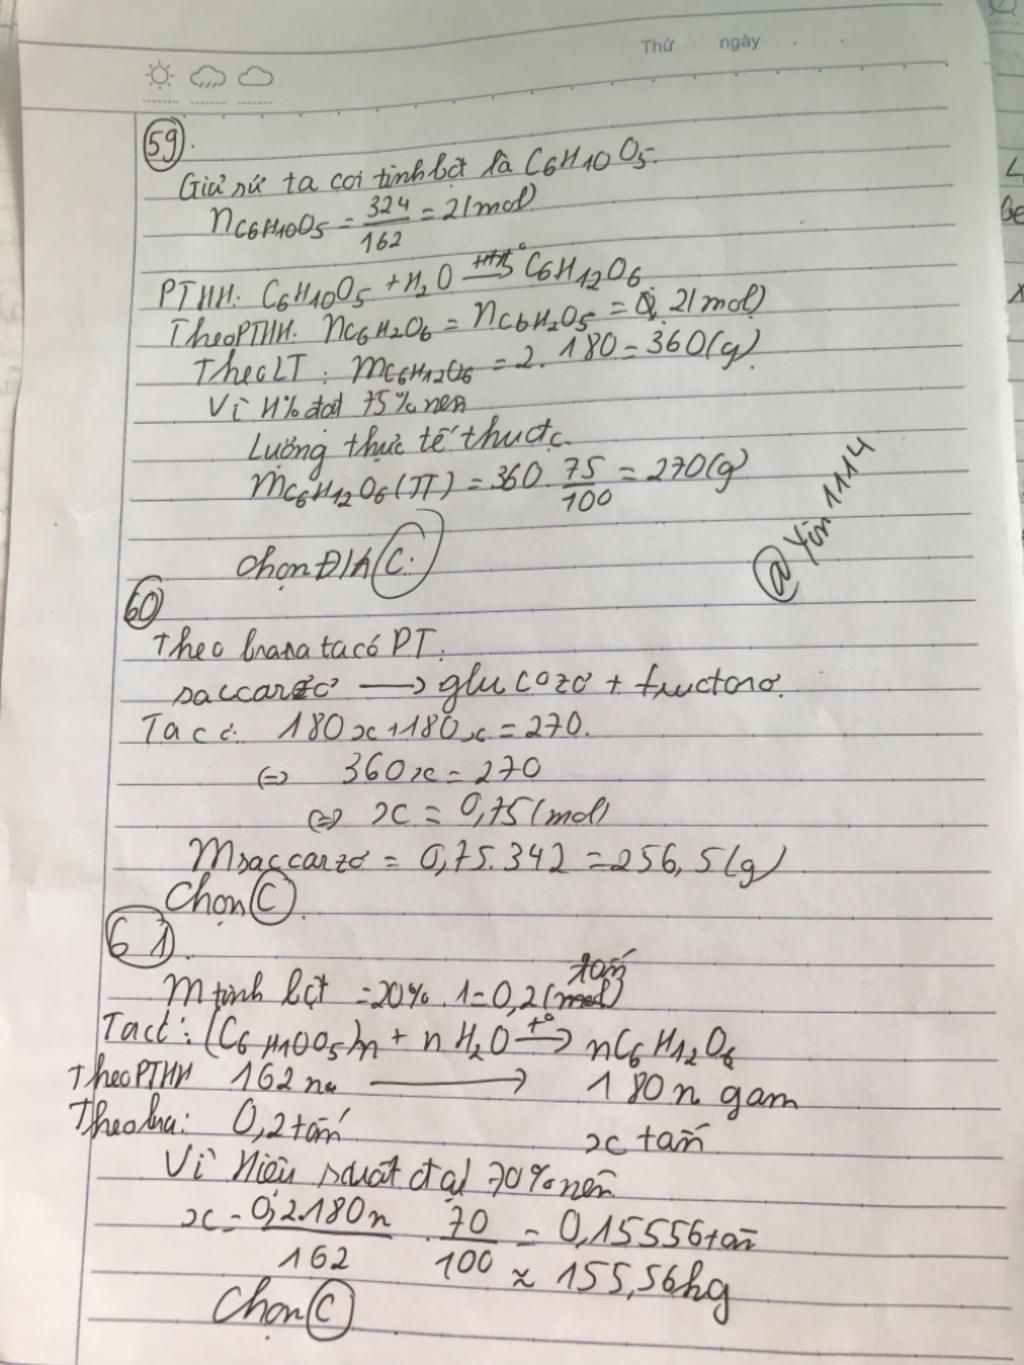 Thứ ngày
59.
Giả sử ta coi tinh bột là C6H10O5.
nC6H10O5 = 324/162 = 2(mol)
PTHH: C6H10O5 + H2O → C6H12O6
TheoPTHH: nC6H2O6 = nC6H2O5 = 2(mol)
Theo LT: mC6H12O6 = 2.180 = 360(g)
Vì H% đạt 75% nên
Lượng thực tế thu đc
mC6H12O6(TT) = 360.75/100 = 270(g)
@Yin1114
Chọn Đ/A C.
60
Theo bra ta có PT.
saccarozơ → glucozơ + fructozơ.
Ta có: 180x+180x = 270.
(=) 360x = 270
(=) x = 0,75(mol)
Msaccarzơ = 0,75.342 = 256,5(g)
Chọn C.
61.
m tinh bột = 20%.1 = 0,2 (tấn)
Ta có: (C6H10O5)n + nH2O t°→ nC6H12O6
TheoPTHH 162n → 180n gam
Theo bra: 0,2 tấn x tấn
Vì hiệu suất đạt 70% nên
x = 0,2.180n/162 . 70/100 = 0,15556 tấn
≈ 155,56kg
Chọn C